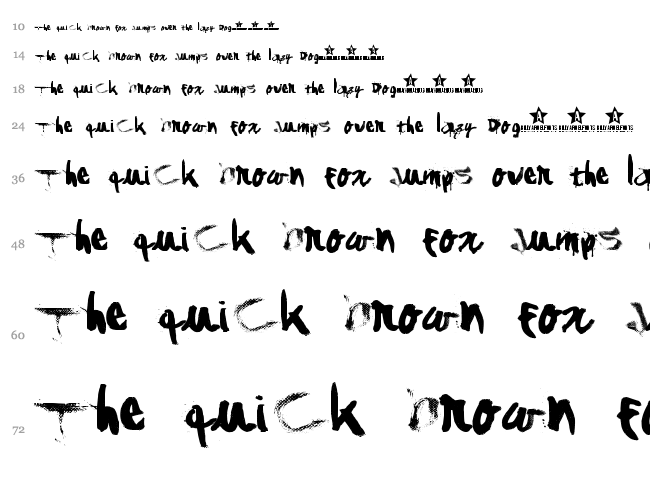 10 The quick brown fox jumps over the lazy Dog
14 The quick brown fox jumps over the lazy Dog
18 The quick brown fox jumps over the lazy Dog
24 The quick brown fox jumps over the lazy Dog
36 The quick brown fox jumps over the la
48 The quick brown fox jumps
60 The quick brown fox j
72 The quick brown fo